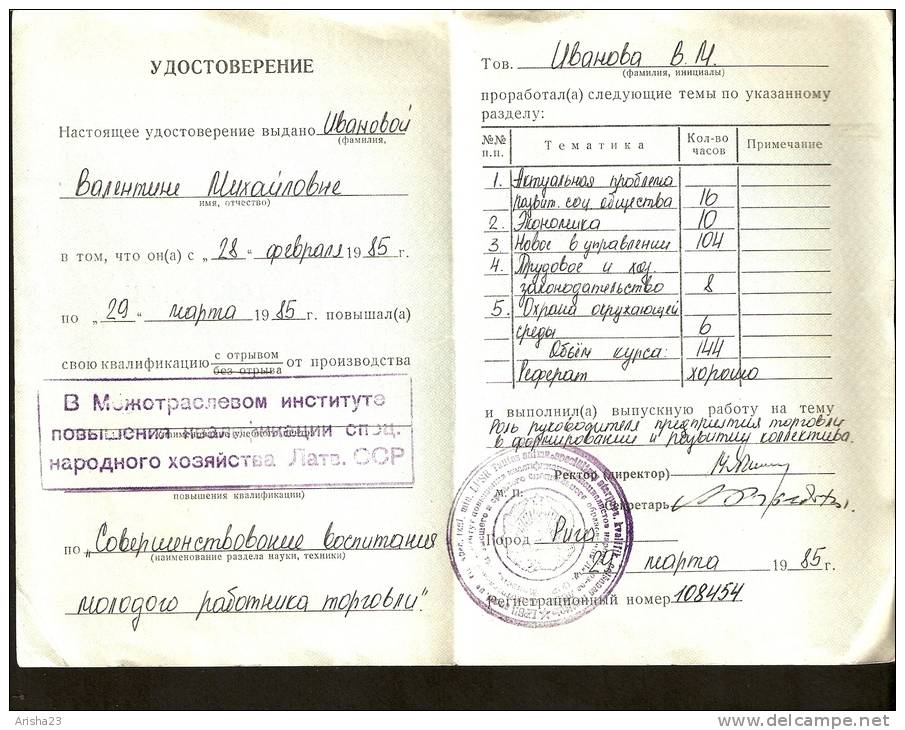 УДОСТОВЕРЕНИЕ
Настоящее удостоверение выдано Ивановой
(фамилия,
Валентине Михайловне
имя, отчество)
в том, что он(а) с „28“ февраля 1985 г.
по „29“ марта 1985 г. повышал(а)
свою квалификацию с отрывом
без отрыва от производства
В Межотраслевом институте
повышения квалификации спец.
народного хозяйства Латв. ССР
повышения квалификации)
по „Совершенствование воспитания
(наименование раздела науки, техники)
молодого работника торговли“.
Тов. Иванова В. М.
(фамилия, инициалы)
проработал(а) следующие темы по указанному
разделу:
№№ п.п. Тематика Кол-во часов Примечание
1. Актуальная проблема
развит. соц. общества 16
2. Экономика 10
3 Новое в управлении 104
4. Трудовое и хоз.
законодательство 8
5. Охрана окружающей
среды 6
Объём курса: 144
Реферат хорошо
и выполнил(а) выпускную работу на тему
Роль руководителя предприятия торговли
в формировании и развитии коллектива.
Ректор (директор)
М. П.
Секретарь
Город Рига
29 марта 1985 г.
Регистрационный номер 108454
Arisha23
www.delcampe.net